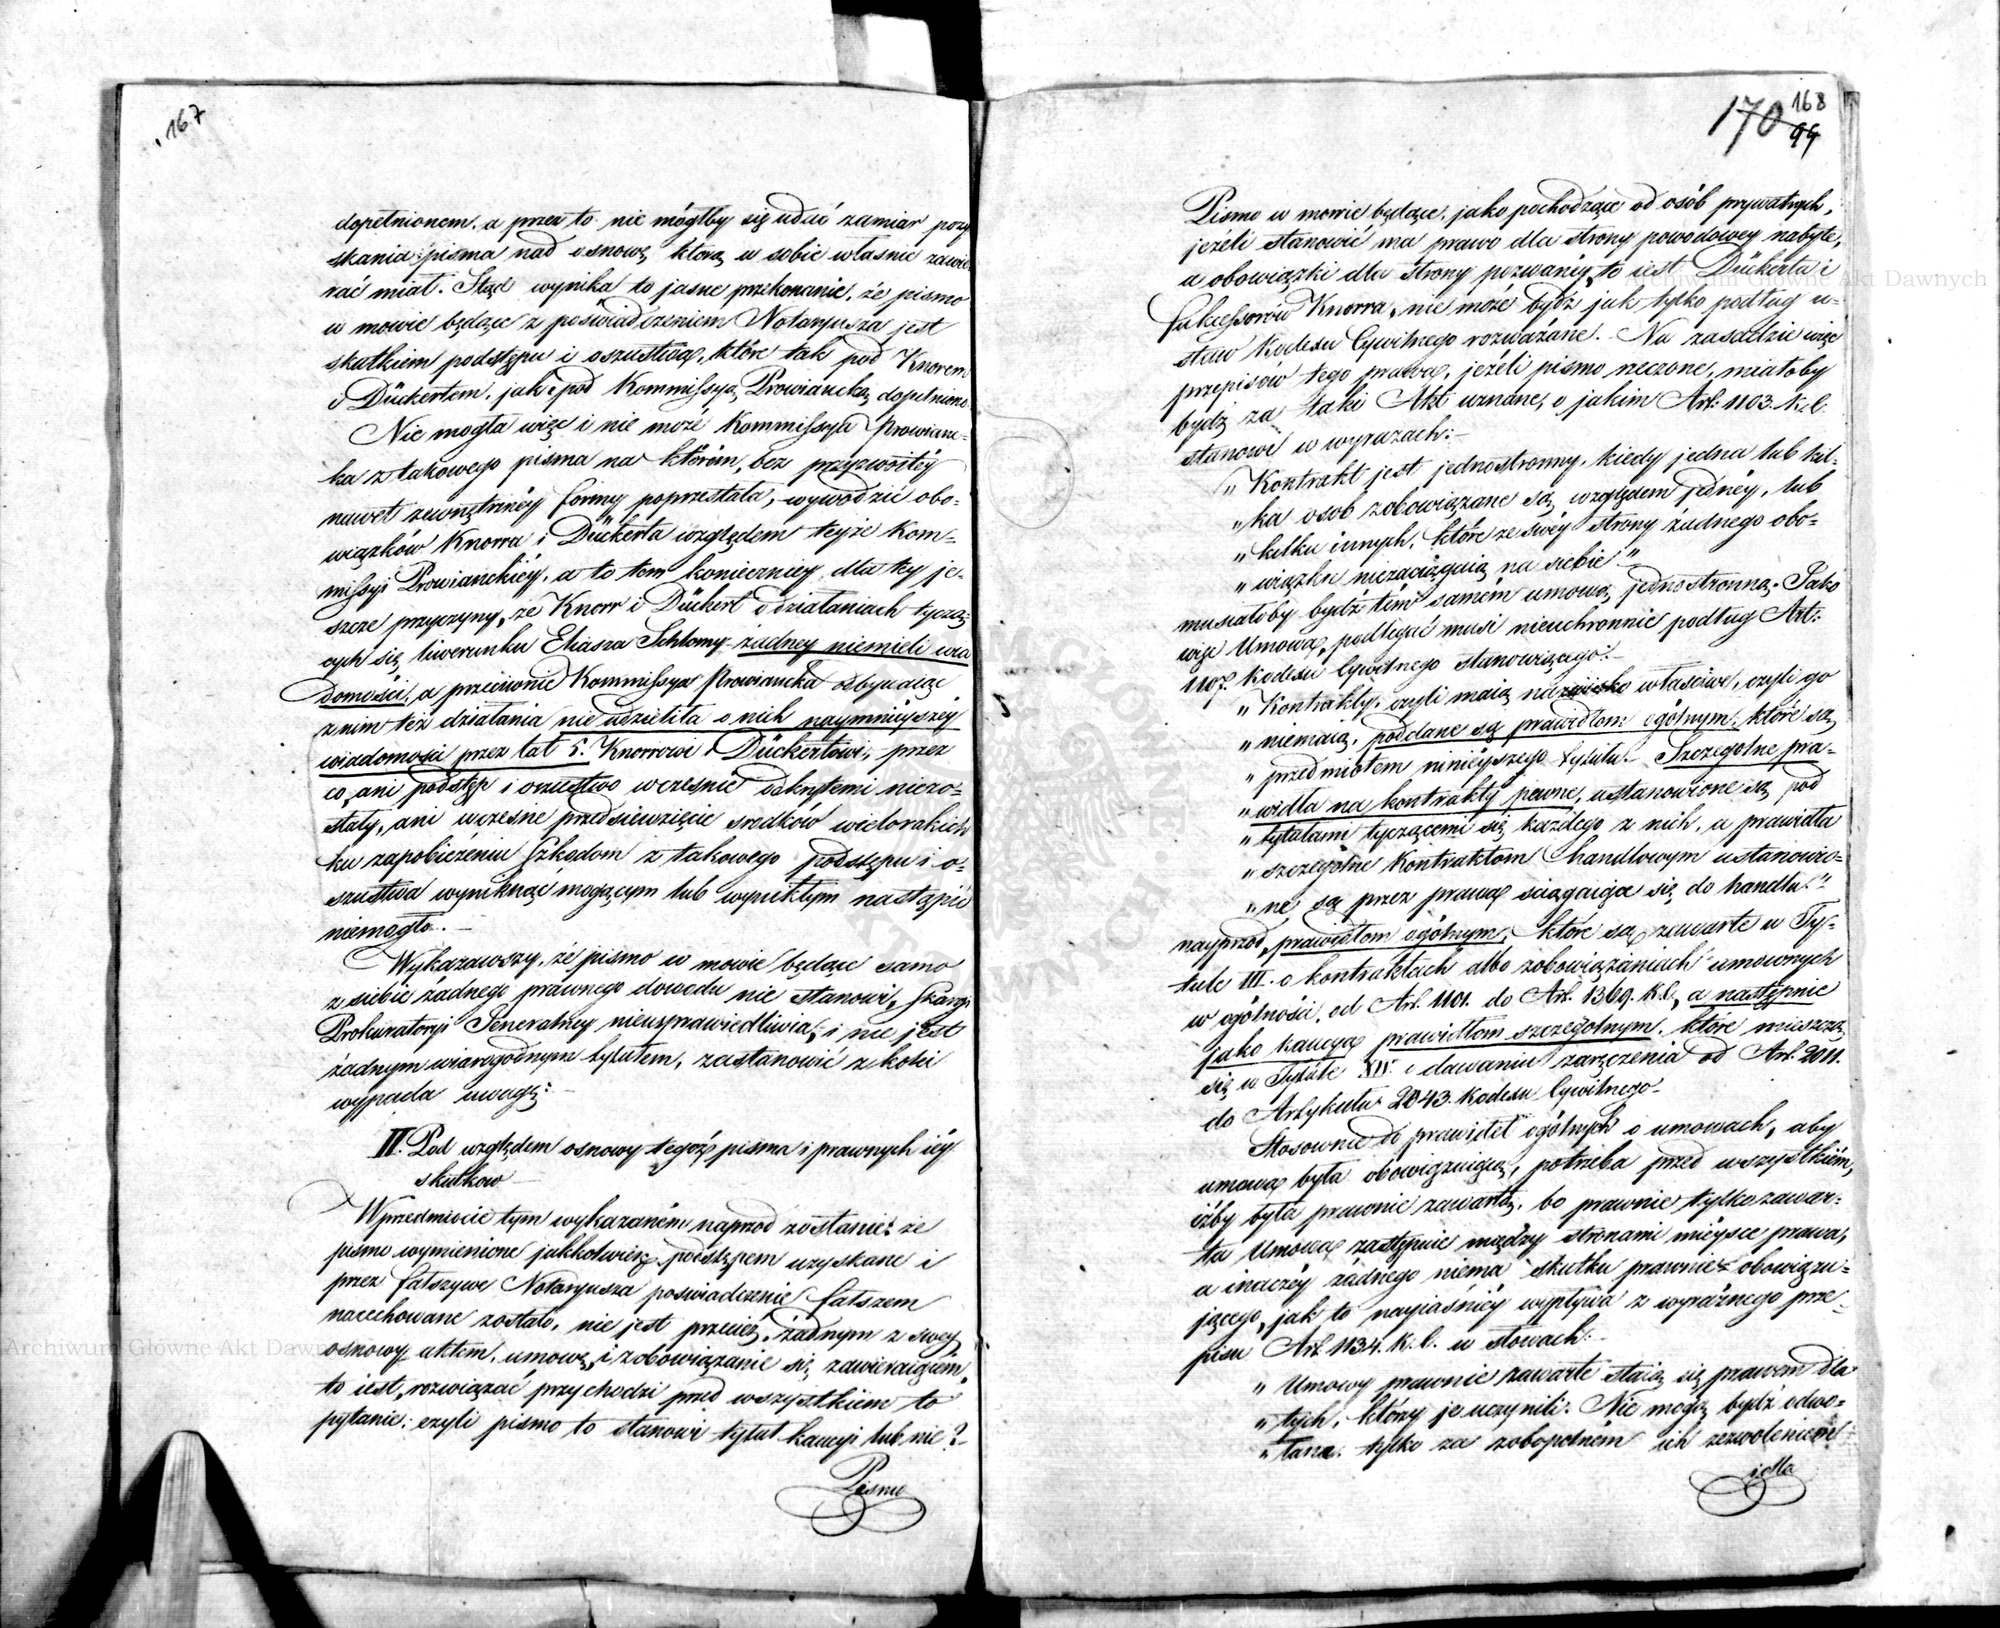 167
dopełnionem, a przez to nie mógłby się udać zamiar pozy
skania pisma nad osnowę którą w sobie własnie zawie
rać miał. Stąd wynika to jasne przekonanie, że pismo
w mowie będące z poświadczeniem Notaryusza jest
skutkiem podstępu i oszustwa, które tak pod Knorem
i Dückertem, jak pod Kommissyą Prowiancką dopełniono.
Nie mogła więc i nie może Kommissya Prowianc-
ka z takowego pisma na którém, bez przyzwoitéy
nawet zewnętrznéy formy poprzestała, wywodzić obo-
wiązków Knorra i Dückerta względem teyże Kom-
missyi Prowianckiéy, a to tem konieczniey dla tey je-
szcze przyczyny, że Knorr i Dückert o działaniach tyczą-
cych się liwerunku Eliasza Schlomy żadney niemieli wia
domości, a przeciwnie Kommissya Prowiancka odbywając
z nim też działania nie udzieliła o nich naymnieyszey
wiadomości przez lat 5. Knorrowi i Dückertowi, przez
co, ani podstęp i oszustwo wcześnie odkrytemi niezo-
stały, ani wczesne przedsiewzięcie srodków wielorakich
ku zapobieżeniu szkodom z takowego podstępu i o-
szustwa wyniknąć mogącym lub wynikłym nastąpić
niemogło.
Wykazawszy, że pismo w mowie będące samo
z siebie żadnego prawnego dowodu nie stanowi, skargi
Prokuratoryi Jeneralney nieusprawiedliwia, i nie jest
żadnym wiarogodnym tytułem, zastanowić z kolei
wypada uwagę:
II. Pod względem osnowy tegoż pisma i prawnych iéy
skutkow
W przedmiocie tym wykazaném naprzod zostanie: że
pismo wymienione jakkolwiek podstępem uzyskane i
przez fałszywe Notaryusza poswiadczenie fałszem
nacechowane zostało, nie jest przecież żadnym z swey
osnowy aktem, umowę, i zobowiązanie się zawieraiącem,
to iest, rozwiązać przychodzi przed wszystkiem to
pytanie: czyli pismo to stanowi tytuł kaucyi lub nie?
Pismo
168
170 99
Pismo w mowie będące, jako pochodzące od osób prywatnych,
jeżeli stanowić ma prawo dla strony powodowey nabyte,
a obowiązki dla strony pozwanéy, to iest Dückerta i
Sukcessorów Knorra, nie może bydź jak tylko podług u-
staw Kodexu Cywilnego rozważane. Na zasadzie więc
przepisów tego prawa, jeżeli pismo rzeczone, miałoby
bydź za taki Akt uznane, o jakim Art: 1103. K. C.
stanowi w wyrazach:
„Kontrakt jest jednostronny, kiedy jedna lub kil-
„ka osob zobowiązane są względem jednéy, lub
„kilku innych, które ze swéy strony żadnego obo-
„wiązku niezaciągaią na siebie"
musiałoby bydź tém samém umową jednostronną. Jako
więc Umowa, podlegać musi nieuchronnie podług Art:
1107. Kodexu Cywilnego stanowiącego:
„Kontrakty, czyli maią nazwisko właściwe, czyli go
„niemaią, poddane są prawidłom ogólnym, które są
„przedmiotem ninieyszego tytułu. Szczególne pra-
„widła na kontrakty pewne, ustanowione są pod
„tytułami tyczącemi się każdego z nich, a prawidła
„szczególne Kontraktom handlowym ustanowio-
„ne, są przez prawa sciągaiące się do handlu."
nayprzod, prawidłom ogólnym, które są zawarte w Ty-
tule III. o kontraktach albo zobowiązaniach umownych
w ogólności, od Art. 1101. do Art. 1369. K. C., a następnie
jako kaucya prawidłom szczególnym, które mieszczą
się w Tytule XIV. o dawaniu zaręczenia od Art. 2011.
do Artykułu 2043. Kodexu Cywilnego.
Stosownie do prawideł ogólnych o umowach, aby
umowa była obowiązuiącą, potrzeba przed wszystkiém,
iżby była prawnie zawartą, bo prawnie tylko zawar-
ta Umowa zastępuie między stronami mieysce prawa,
a inaczéy żadnego niema skutku prawnie obowiązu-
jącego, jak to nayiaśniéy wypływa z wyraźnego prze-
pisu Art. 1134. K. C. w słowach:
„Umowy prawnie zawarte staią się prawem dla
„tych, którzy je uczynili. Nie mogą bydź odwo-
„łane, tylko za zobopolném ich zezwoleniem